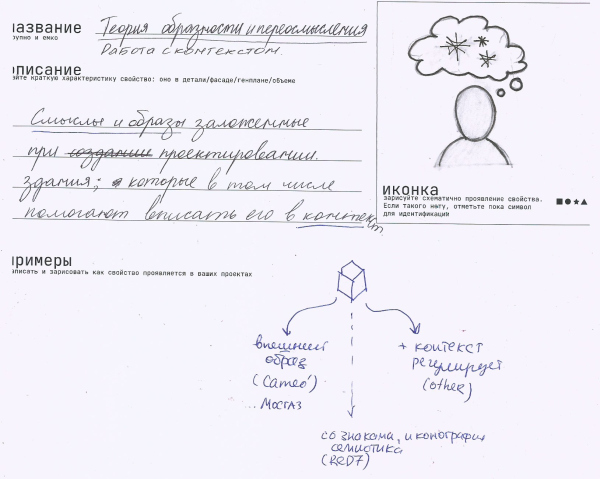 название
крупно и емко
Теория образности и переосмысления
Работа с контекстом.
описание
дайте краткую характеристику свойство: оно в детали/фасаде/генплане/объеме
Смыслы и образы заложенные
при создании проектировании.
здания; которые в том числе
помогают вписать его в контекст
иконка
зарисуйте схематично проявление свойства.
Если такого нету, отметьте пока символ
для идентификаций
примеры
описать и зарисовать как свойство проявляется в ваших проектах
внешний
образ
(Cameo)
... МОСГАЗ
+ контекст
регулирует
(other)
со знаками, иконография
семиотика
(RED7)